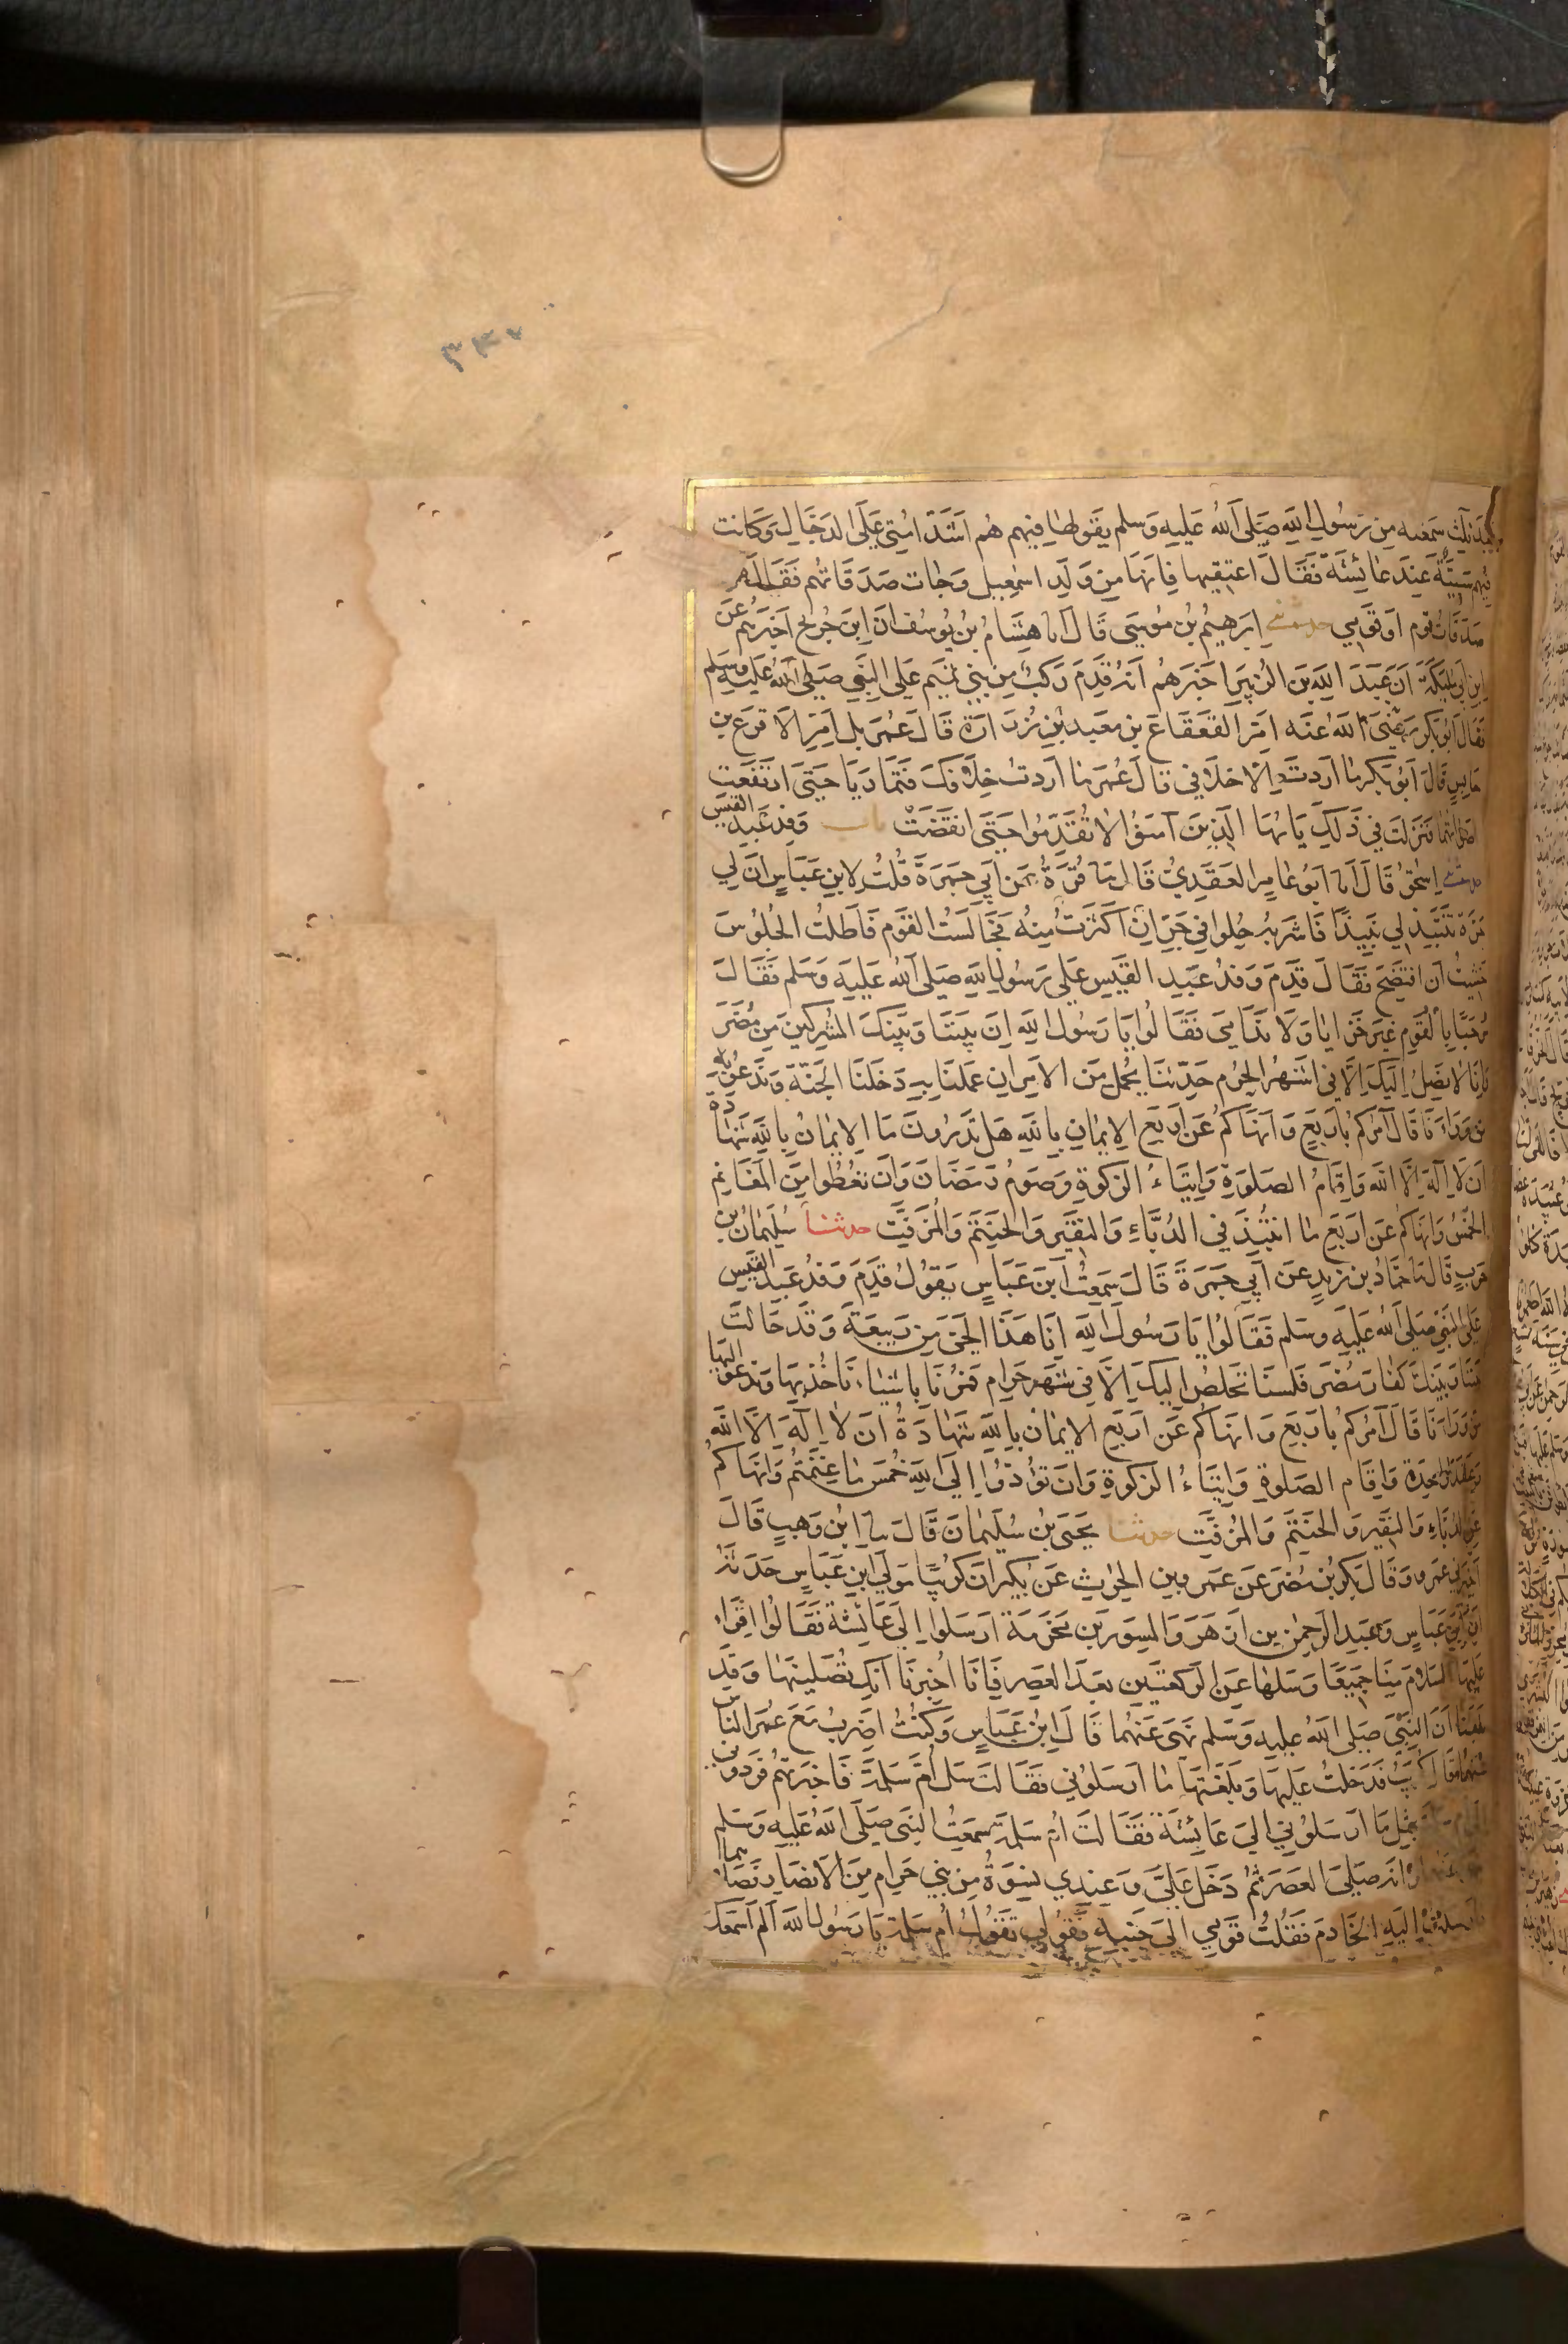 ٣٤٠
بعد ثلث سمعته من رسول الله صلى الله عليه وسلم يقولها فيهم هم اشد امتي على الدجال وكانت
فيهم سبية عند عائشة فقال اعتقيها فانها من ولد اسمعيل وجات صدقاتهم فقال هذه
صدقات قوم او قومي حدثني ابرهيم بن موسى قال انا هشام بن يوسف ان ابن جريج اخبرهم عن
ابن ابي مليكة ان عبد الله بن الزبير اخبرهم انه قدم ركب من بني تميم على النبي صلى الله عليه وسلم
فقال ابو بكر رضي الله عنه امر القعقاع بن معبد بن زرارة قال عمر بل امر الاقرع بن
حابس قال ابو بكر ما اردت الا خلافي قال عمر ما اردت خلافك فتماريا حتى ارتفعت
اصواتهما فنزلت في ذلك يا يها الذين آمنوا لا تقدموا حتى انقضت باب وفد عبد القيس
حدثني اسحق قال انا ابو عامر العقدي قال نا قرة عن ابي جمرة قلت لابن عباس ان لي
جرة تنتبذ لي نبيذا فاشربه حلوا في جر ان اكثرت منه فجالست القوم فاطلت الجلوس
خشيت ان افتضح فقال قدم وفد عبد القيس على رسول الله صلى الله عليه وسلم فقال
مرحبا بالقوم غير خزايا ولا ندامى فقالوا يا رسول الله ان بيننا وبينك المشركين من مضر
وانا لا نصل اليك الا في اشهر الحرم حدثنا بجمل من الامر ان عملنا به دخلنا الجنة وندعو به
من وراءنا قال آمركم باربع وانهاكم عن اربع الايمان بالله هل تدرون ما الايمان بالله شهادة
ان لا اله الا الله واقام الصلوة وايتاء الزكوة وصوم رمضان وان تعطوا من المغانم
الخمس وانهاكم عن اربع ما انتبذ في الدباء والنقير والحنتم والمزفت حدثنا سليمان بن
حرب قال نا حماد بن زيد عن ابي جمرة قال سمعت ابن عباس يقول قدم وفد عبد القيس
على النبي صلى الله عليه وسلم فقالوا يا رسول الله انا هذا الحي من ربيعة وقد حالت
بيننا وبينك كفار مضر فلسنا نخلص اليك الا في شهر حرام فمرنا باشياء ناخذ بها وندعو اليها
من وراءنا قال آمركم باربع وانهاكم عن اربع الايمان بالله شهادة ان لا اله الا الله
وعقد واحدة واقام الصلوة وايتاء الزكوة وان تؤدوا الى الله خمس ما غنمتم وانهاكم
عن الدباء والنقير والحنتم والمزفت حدثنا يحيى بن سليمان قال نا ابن وهب قال
اخبرني عمرو وقال بكر بن مضر عن عمرو بن الحرث عن بكير ان كريبا مولى ابن عباس حدثه
ان ابن عباس وعبد الرحمن بن ازهر والمسور بن مخرمة ارسلوا الى عائشة فقالوا اقراء
عليها السلام منا جميعا وسلها عن الركعتين بعد العصر فانا اخبرنا انك تصلينها وقد
بلغنا ان النبي صلى الله عليه وسلم نهى عنهما قال ابن عباس وكنت اضرب مع عمر الناس
عنهما قال كريب فدخلت عليها وبلغتها ما ارسلوني فقالت سل ام سلمة فاخبرتهم فردوني
الى ام سلمة بمثل ما ارسلوني الى عائشة فقالت ام سلمة سمعت النبي صلى الله عليه وسلم
ينهى عنهما وانه صلى العصر ثم دخل علي وعندي نسوة من بني حرام من الانصار فصلاهما
فارسلت اليه الخادم فقلت قومي الى جنبه فقولي تقول ام سلمة يا رسول الله الم اسمعك